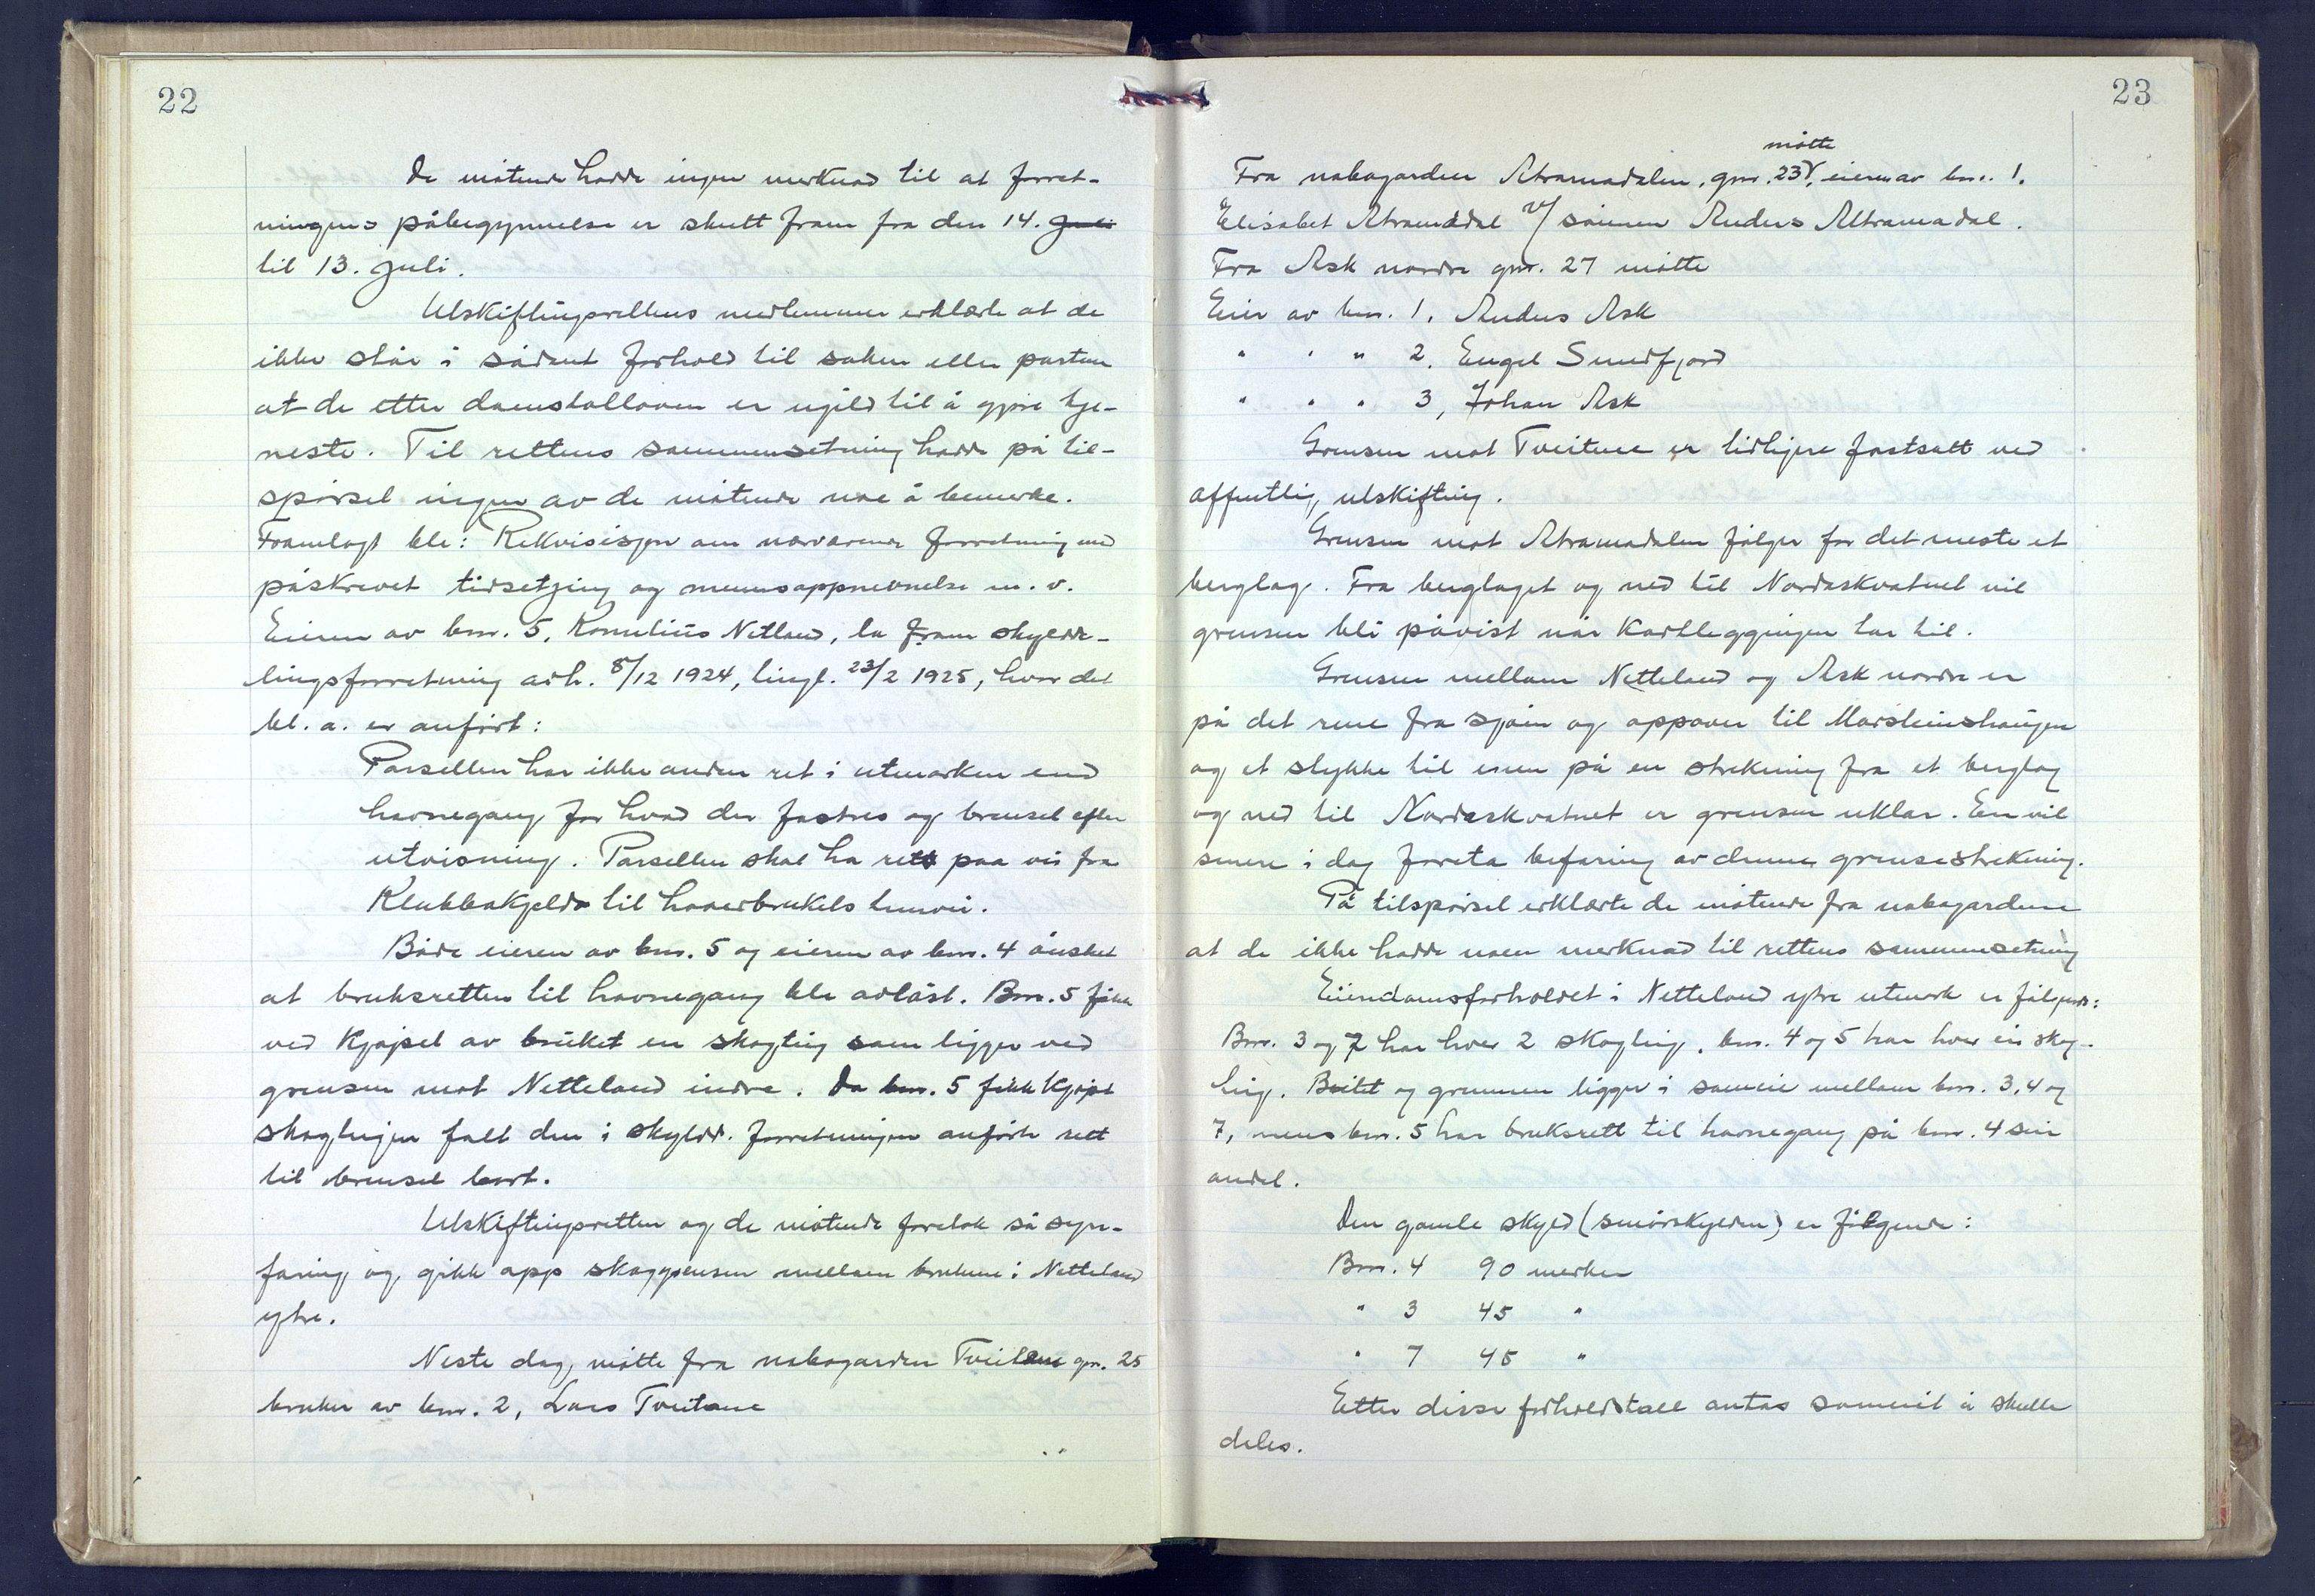 22
De møtende hadde ingen merknad til at forret-
ningens påbegynnelse er skutt fram fra den 14. Juli
til 13. Juli.
Utskiftingsrettens medlemmer erklærte at de
ikke står i sådant forhold til saken eller partene
at de etter domstolloven er ugild til å gjøre tje-
neste. Til rettens sammensetning hadde på til-
spørsel ingen av de møtende noe å bemerke.
Framlagt ble: Rekvisisjon om nærværende forretning med
påskrevet tidsetjing og mennsoppnevnelse m. v.
Eieren av bnr. 5, Kornelius Netland, la fram skylde-
lingsforretning avh. 8/12 1924, tingl. 23/2 1925, hvor det
bl. a. er anført:
Parsellen har ikke anden ret i utmarken end
havnegang for hvad der fostres og brensel efter
utvisning. Parsellen skal ha rett paa vei fra
Klubbakjelda til hoverbrukets tunvei.
Både eieren av bnr. 5 og eieren av bnr. 4 ønsket
at bruksretten til havnegang ble avløst. Bnr. 5 fikk
ved kjøpet av bruket en skogteig som ligger ved
grensen mot Netteland indre. Da bnr. 5 fikk kjøpt
skogteigen falt den i skyldd. forretningen anførte rett
til brensel bort.
Utskiftingsretten og de møtende foretok så syn-
faring og gikk opp skoggrensen mellem brukene i Netteland
ytre.
Neste dag møtte fra nabogarden Tveitane gnr. 25
bruker av bnr. 2, Lars Tveitane
23
møtte
Fra nabogarden Atramadalen, gnr. 23, eieren av bnr. 1.
Elisabet Atramadal v/ sønnen Anders Altramadal.
Fra Ask nordre gnr. 27 møtte
Eier av bnr. 1, Anders Ask
" " " 2. Engel Sundfjord
" " " 3, Johan Ask
Grensen mot Tveitene er tidligere fastsatt ved
offentlig utskifting.
Grensen mot Atramadalen følger for det meste et
berglag. Fra berglaget og ned til Nordaskvatnet vil
grensen bli påvist når kartleggingen tar til.
Grensen mellom Netteland og Ask nordre er
på det rene fra sjøen og oppover til Marsteinshaugen
og et stykke til enen på en strekning fra et berglag
og ned til Nordaskvatnet er grensen uklar. En vil
senere i dag foreta befaring av denne grensestrekning.
På tilspørsel erklærte de møtende fra nabogardene
at de ikke hadde noen merknad til rettens sammensetning
Eiendomsforholdet i Netteland ytre utmark er følgende:
Bnr. 3 og 7 har hver 2 skogteig, bnr. 4 og 5 har hver ein skog-
teig. Beitet og grunnen ligger i sameie mellom bnr. 3, 4 og
7, mens bnr. 5 har bruksrett til havnegang på bnr. 4 sin
andel.
Den gamle skyld (smørskylden) er følgende:
Bnr. 4 90 merker
" 3 45 "
" 7 45 "
Etter disse forholdstall antas sameiet å skulle
deles.